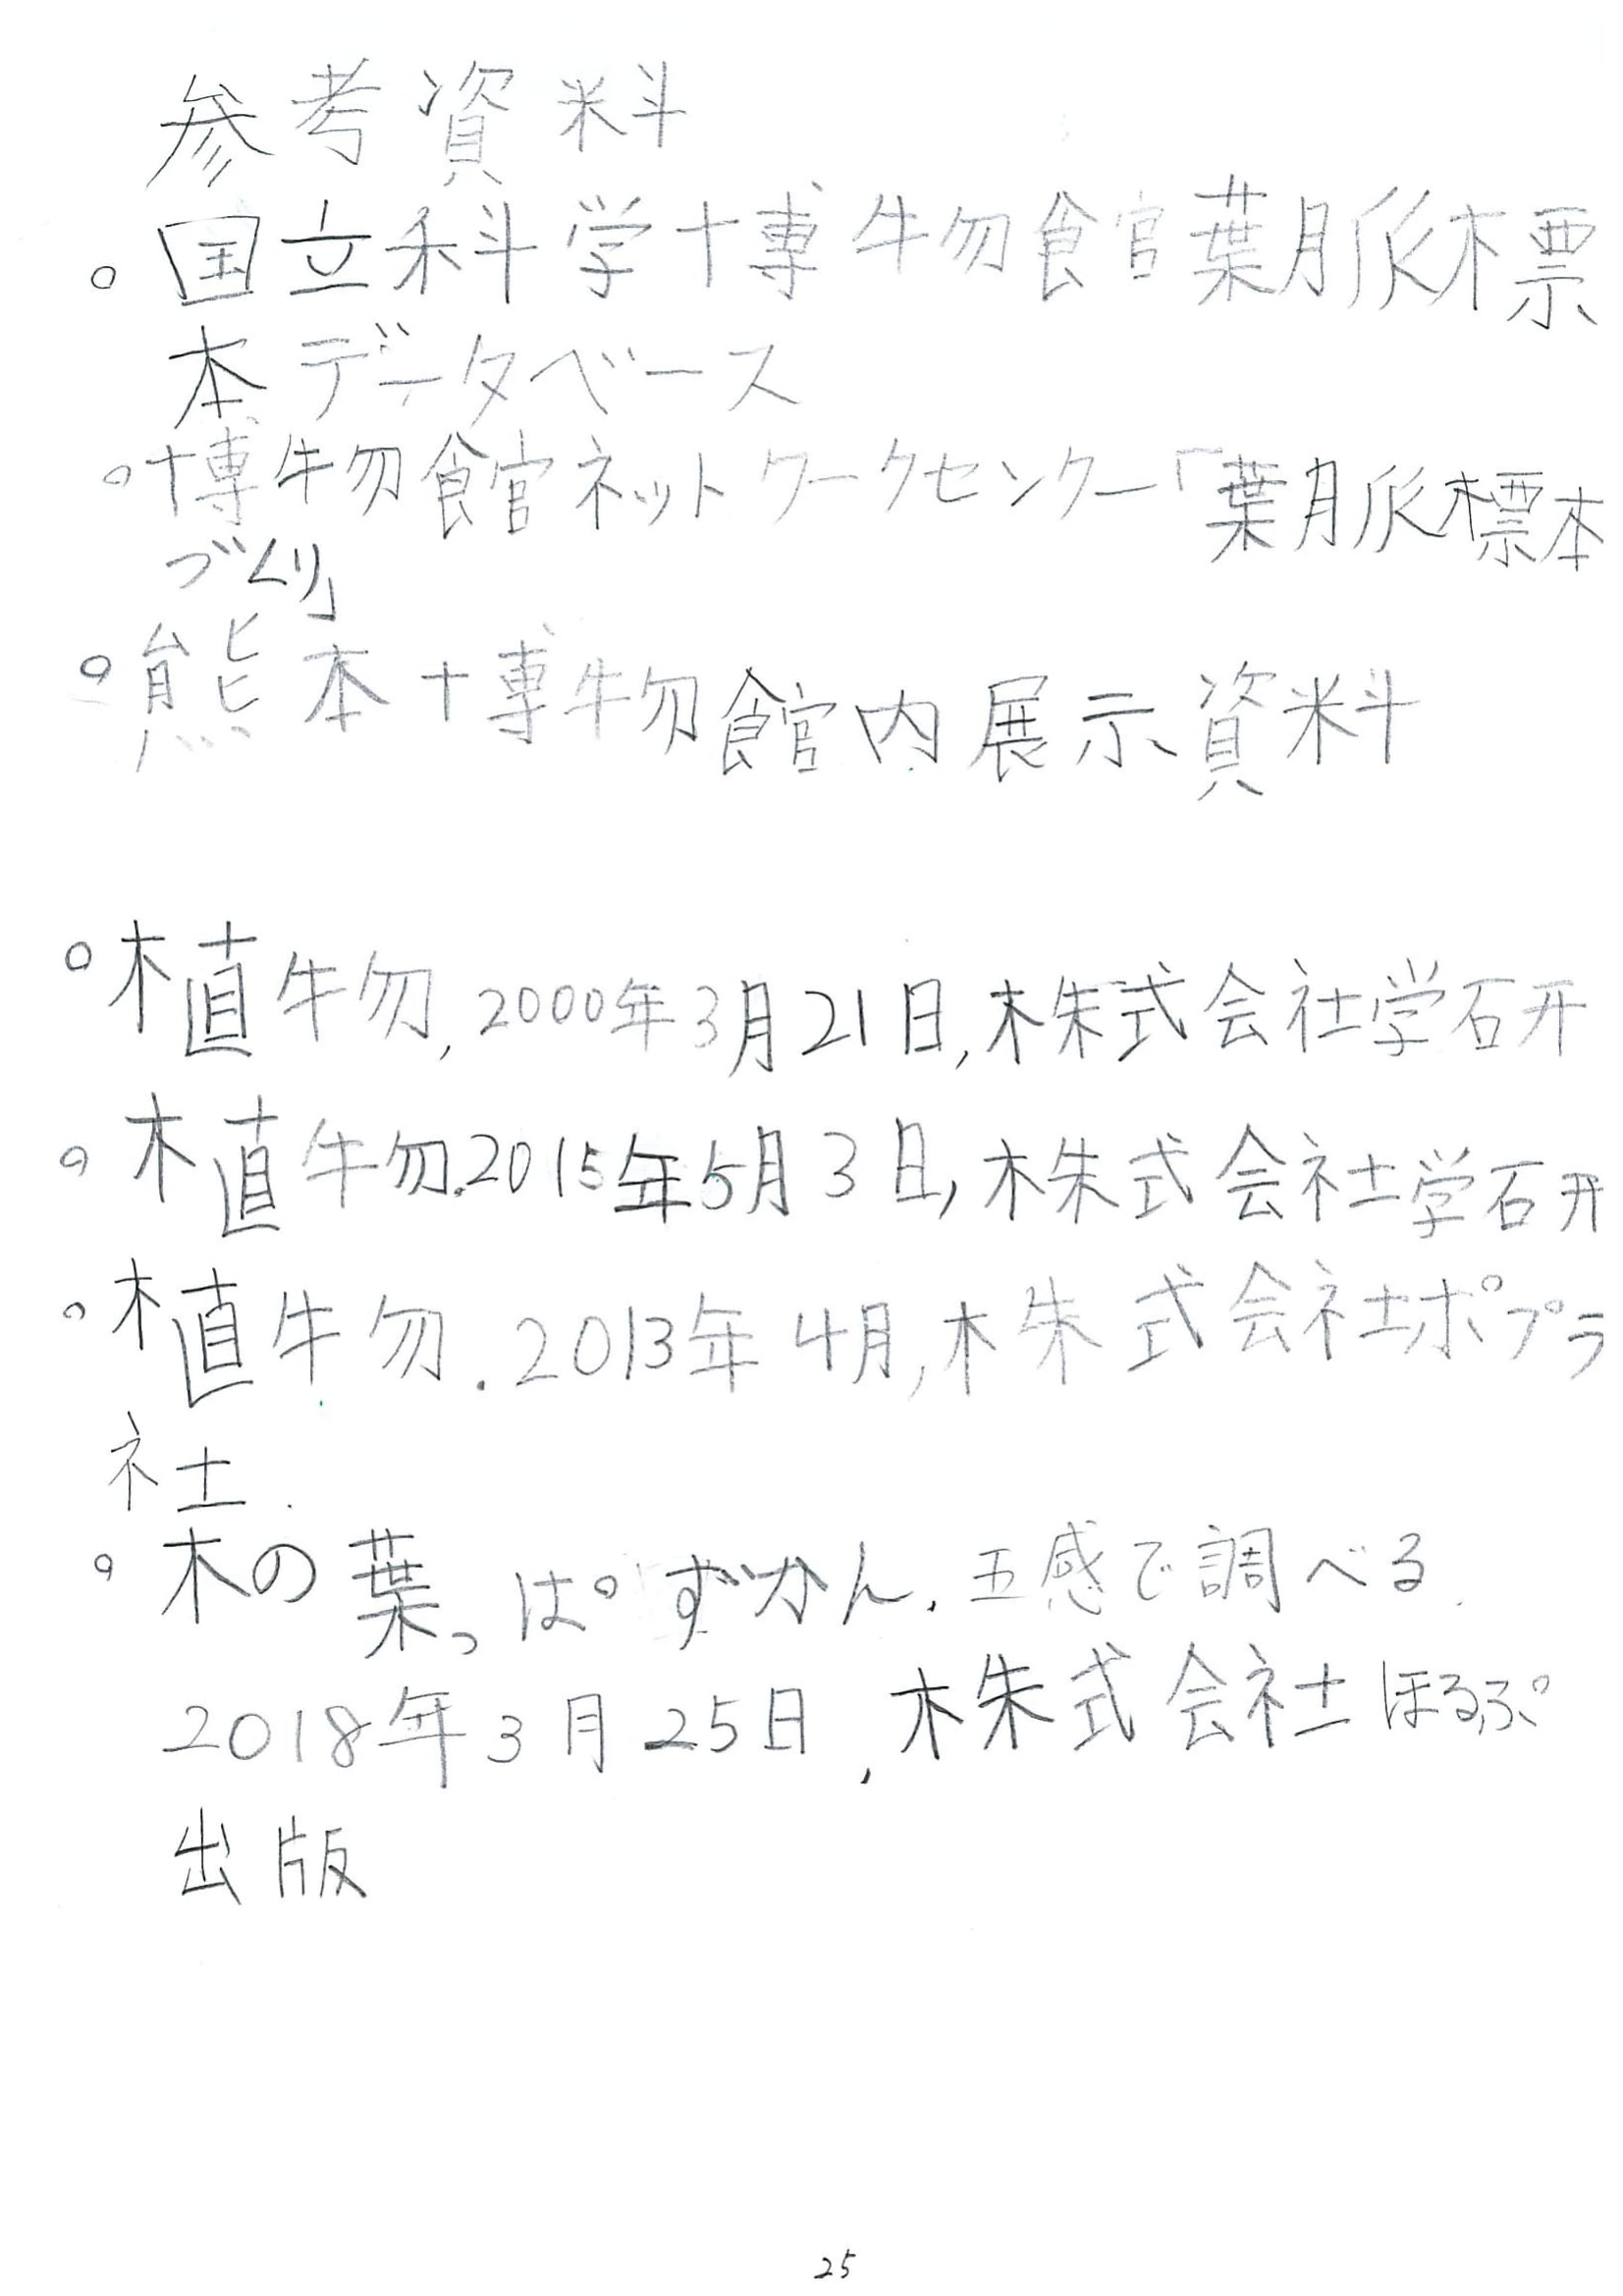 参考資料
。国立科学博物館葉脈標
本データベース
。博物館ネットワークセンター「葉脈標本
づくり」
。熊本博物館内展示資料
。植物,2000年3月21日,株式会社学研
。植物.2015年5月3日,株式会社学研
。植物.2013年4月,株式会社ポプラ
社.
。木の葉っぱずかん.五感で調べる.
2018年3月25日,株式会社ほるぷ
出版
25